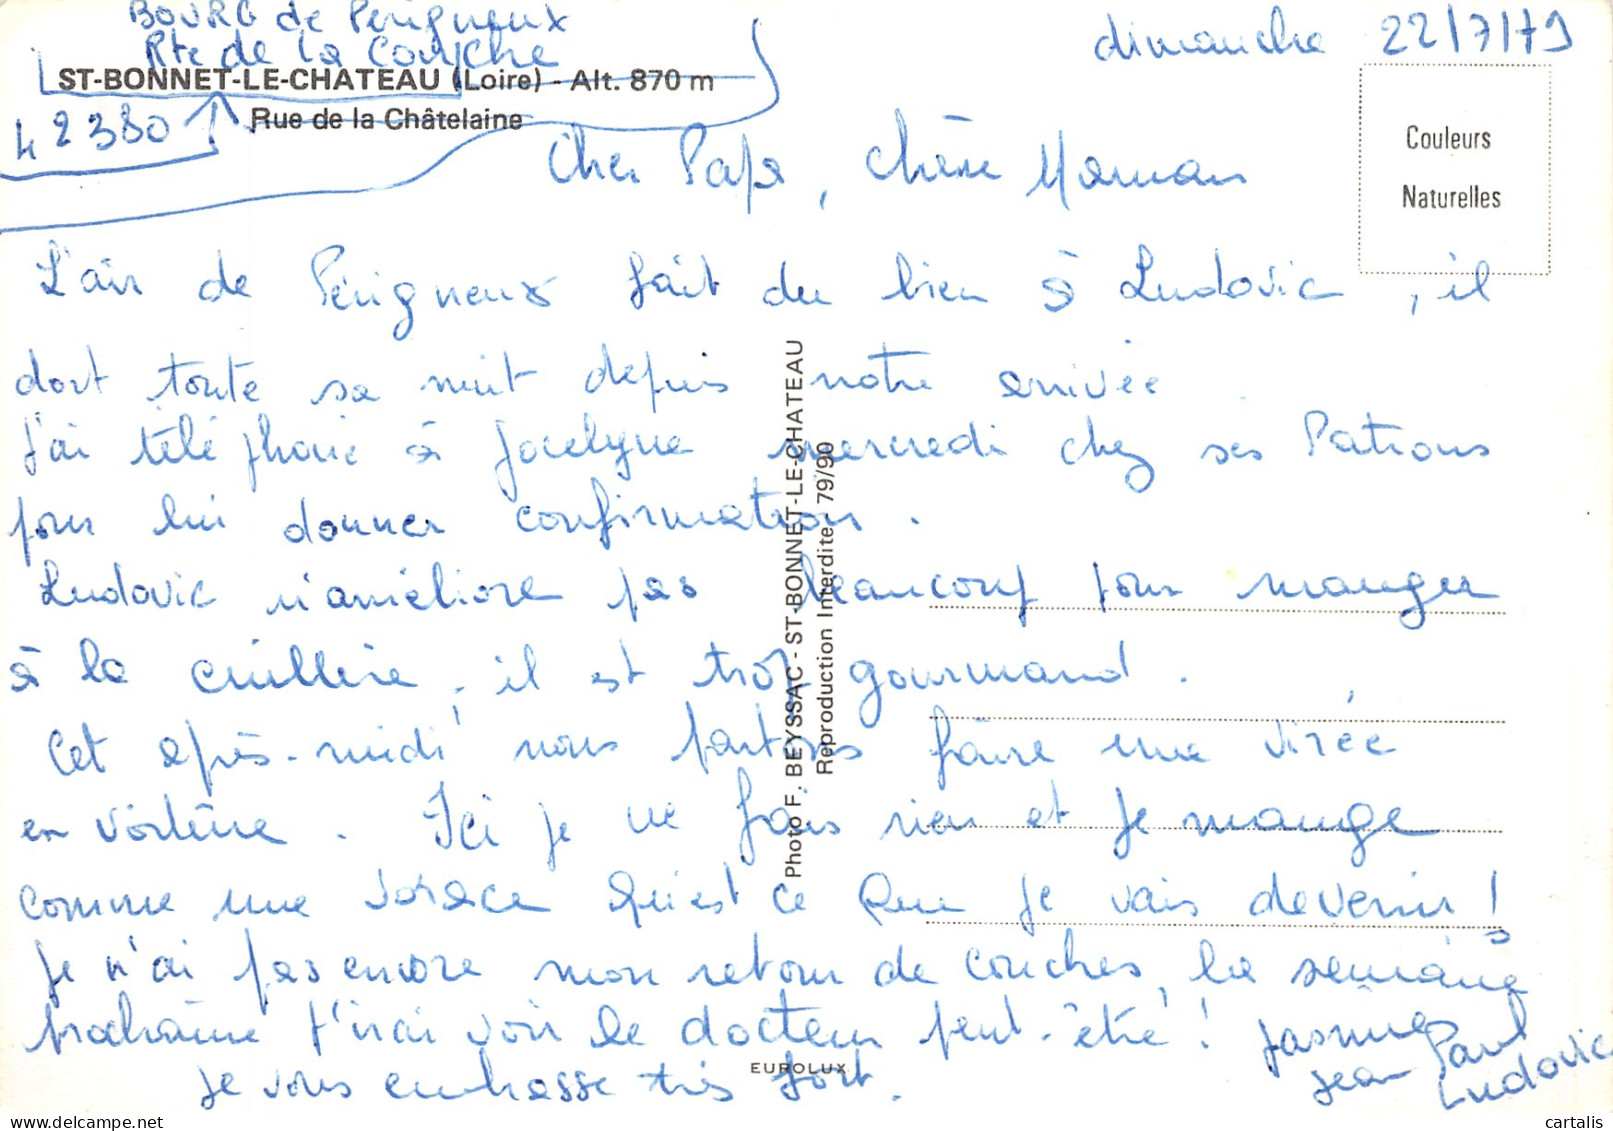 BOURG de Périgneux
Rte de la Couche
dimanche 22/7/79
ST-BONNET-LE-CHATEAU (Loire) - Alt. 870 m
42380
Rue de la Châtelaine
Couleurs
Naturelles
Cher Papa, chère Maman
L'air de Périgneux fait du bien à Ludovic, il
dort toute sa nuit depuis notre arrivée
J'ai téléphoné à Jocelyne mercredi chez ses Patrons
pour lui donner confirmation.
Ludovic n'améliore pas beaucoup pour manger
à la cuillère, il est trop gourmand.
Cet après-midi nous partons faire une virée
en voiture. Ici je ne fais rien et je mange
comme une vorace Qu'est ce que je vais devenir !
Je n'ai pas encore mon retour de couches, la semaine
prochaine j'irai voir le docteur peut-être !
je vous embrasse très fort.
Jasmine
Jean Paul
Ludovic
Photo F. BEYSSAC - ST-BONNET-LE-CHATEAU
Reproduction Interdite - 79/90
EUROLUX
cartalis